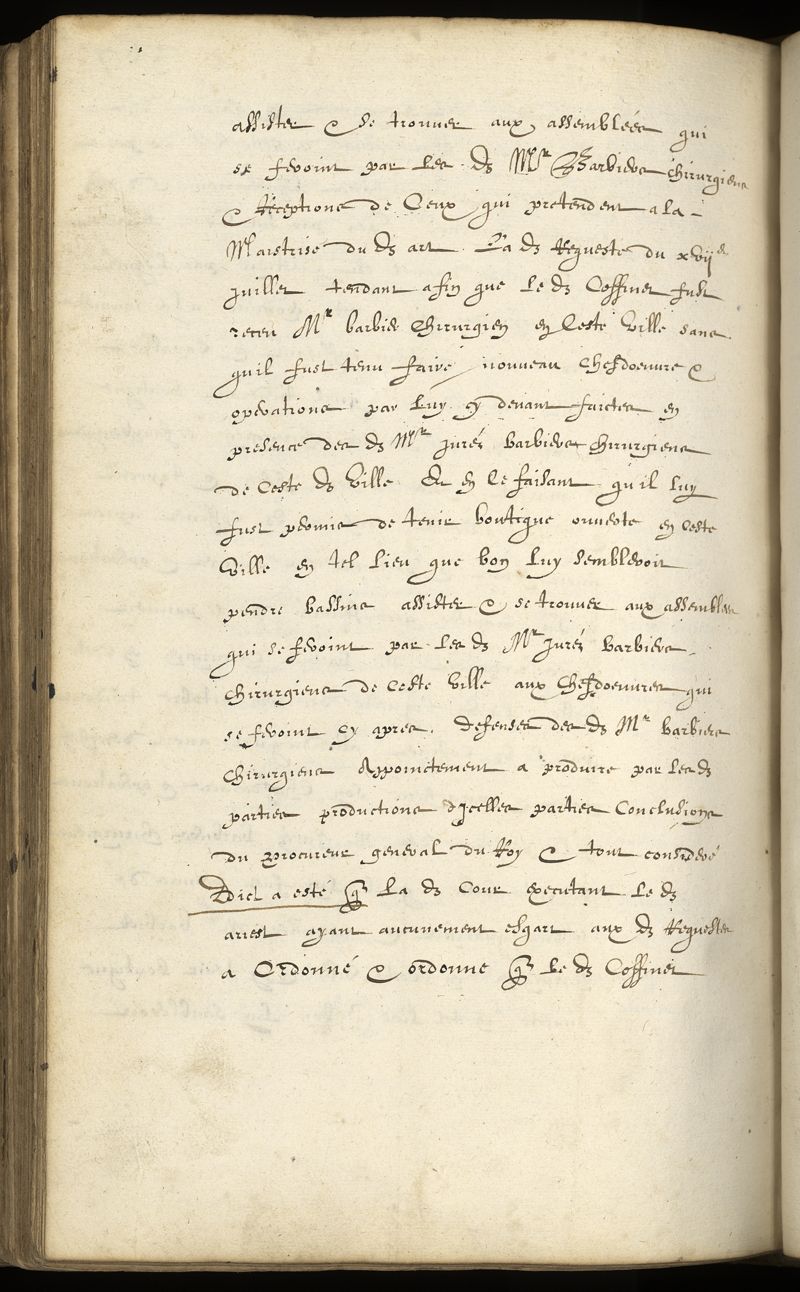 assister & se trouver aux assemblées qui
se feroint par les ds Mrs Barbiers chirurgiens
& Réceptions de Ceux qui pretendent a la
Maistrise du ds art. La ds Requeste du xvije
juillet tendant afin que le ds Coffinet fust
receu Mr barbier Chirurgien en Ceste Ville sans
quil fust tenu faire nouveau Chefdoeuvre &
operations par luy cy devant faictes en
presence des ds Mrs jurés barbiers chirurgiens
de Ceste ds Ville Et en ce faisant quil luy
fust permis de tenir boutique ouverte en ceste
Ville en tel lieu que bon luy sembleroit
pendre bassins assister & se trouver aux assemblees
qui se feroint par les ds Mrs jurés barbiers
chirurgiens de ceste ville aux Chefdoeuvres qui
se feroint cy apres. defenses des ds Mrs barbiers
chirurgiens Appoinctement a produire par lesds
parties productions dicelles parties Conclusions
du procureur general du Roy & tout consideré
Dict a esté q la ds Cour executant le ds
arrest ayant aucunement esgart aux ds Requestes
a Ordonné & ordonne q le ds Coffinet